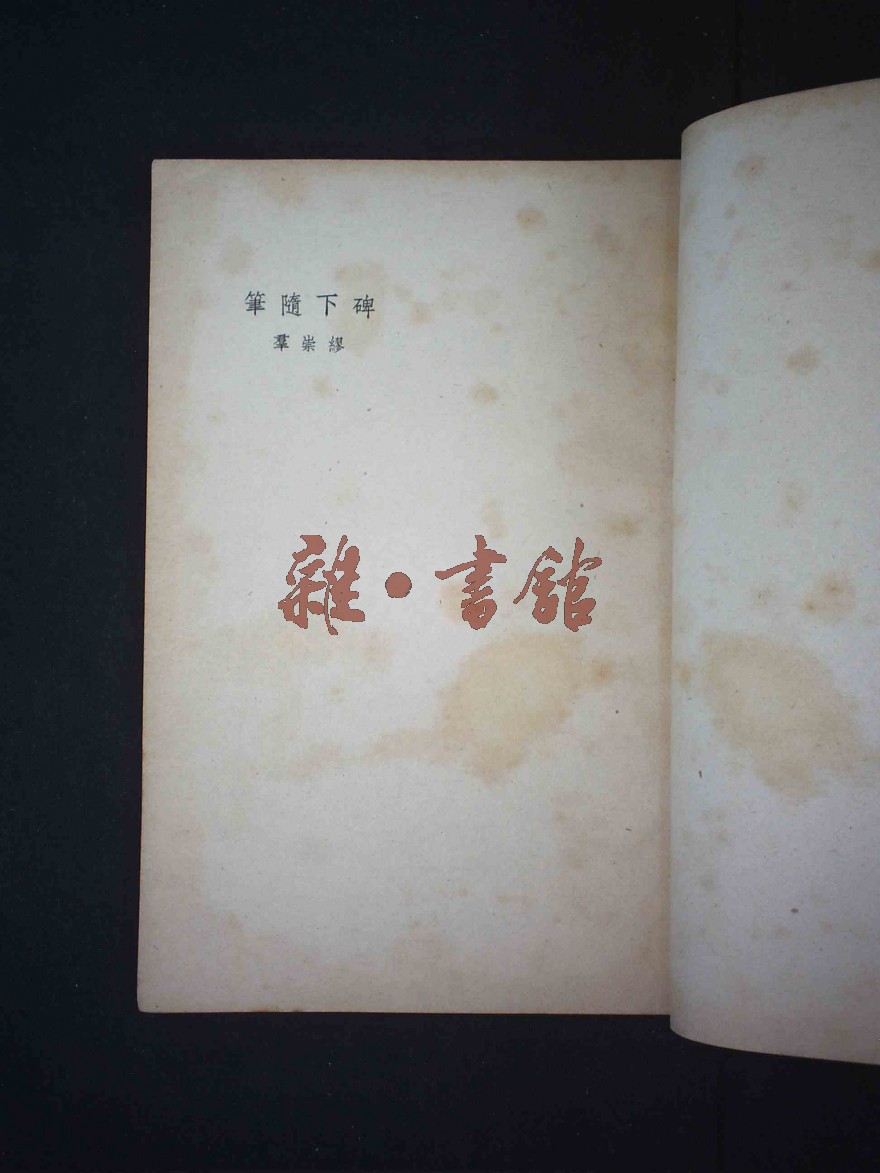 碑下隨筆
繆崇羣
雜·書館